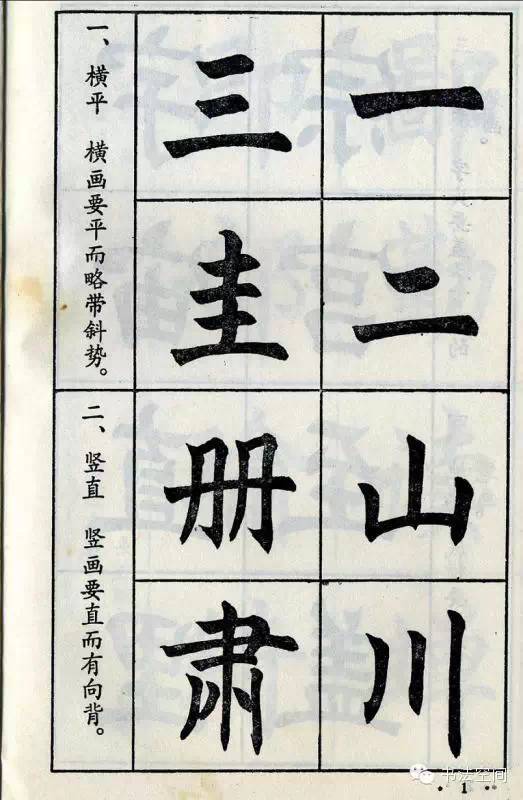 一
二
山
川
三
圭
册
肃
一、横平　横画要平而略带斜势。
二、竖直　竖画要直而有向背。
·1·
书法空间